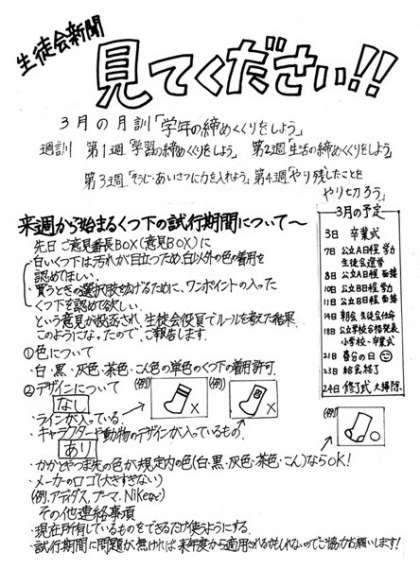 生徒会新聞
見てください!!
3月の月訓「学年の締めくくりをしよう」
週訓 第1週「学習の締めくくりをしよう」 第2週「生活の締めくくりをしよう」
第3週「そうじ・あいさつに力を入れよう」 第4週「やり残したことを
やり切ろう」
来週から始まるくつ下の試行期間について〜
先日ご意見番長BOX(意見BOX)に
・白いくつ下は汚れが目立つため、白以外の色の着用を
認めてほしい。
・買うときの選択肢を広げるために、ワンポイントの入った
くつ下を認めて欲しい。
という意見が投函され、生徒会役員でルールを考えた結果、
このようになったので、ご報告します。
①色について
・白・黒・灰色・茶色・こん色の単色のくつ下の着用許可。
②デザインについて
なし
(例)
×
(例)
×
・ラインが入っている。
・キャラクターや動物のデザインが入っているもの。
あり
(例)
・かかとやつま先の色が規定内の色(白・黒・灰色・茶色・こん)ならOK!
・メーカーのロゴ(大きすぎない)
(例、アディダス、プーマ、NIKEなど)
その他連絡事項
・現在所有しているものをできるだけ使うようにする。
・試行期間に問題が無ければ来年度から適用されるかもしれないのでご協力お願いします!
3月の予定
3日 卒業式
7日 公立A日程 学力
生徒会選挙
8日 公立A日程 面接
10日 公立B日程 学力
11日 公立B日程 面接
14日 朝会 生徒会任命
18日 公立学校合格発表
小学校・卒業式
21日 春分の日
23日 給食終了
24日 修了式 大掃除